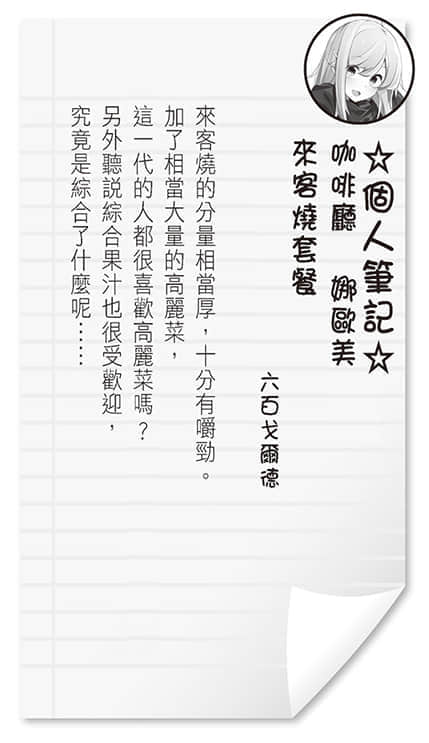 ☆個人筆記☆
咖啡廳　娜歐美
來客燒套餐
六百戈爾德
來客燒的分量相當厚，十分有嚼勁。
加了相當大量的高麗菜，
這一代的人都很喜歡高麗菜嗎？
另外聽說綜合果汁也很受歡迎，
究竟是綜合了什麼呢……